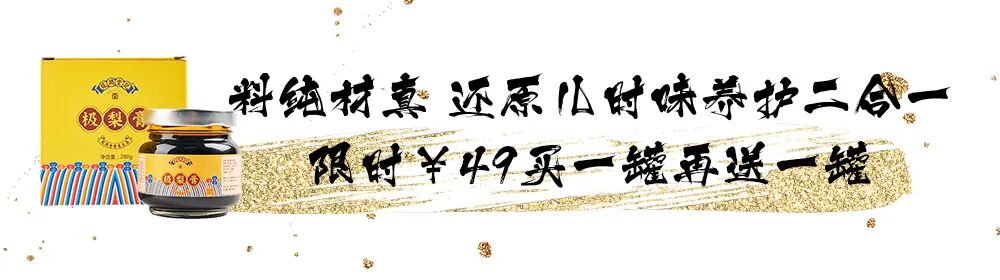 料纯材真 还原儿时味养护二合一
限时￥49买一罐再送一罐
极梨膏
净含量：280g
极梨膏